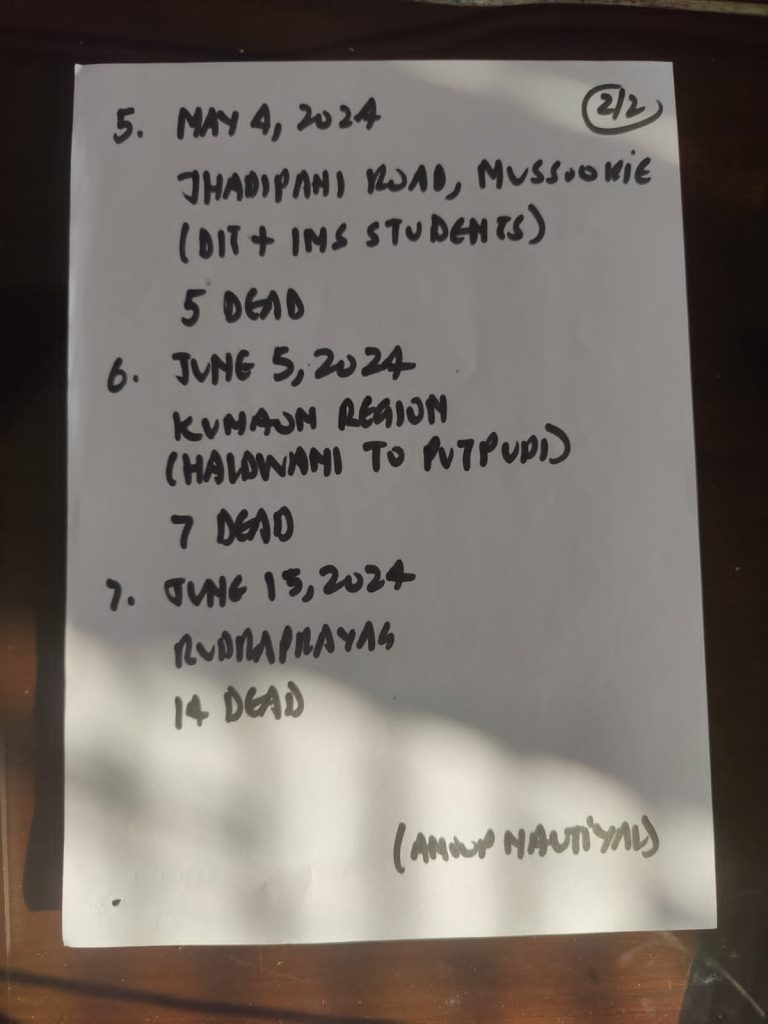 2/2
5. MAY 4, 2024
JHADIPANI ROAD, MUSSOORIE
(DIT + IMS STUDENTS)
5 DEAD
6. JUNE 5, 2024
KUMAON REGION
(HALDWANI TO PUTPUDI)
7 DEAD
7. JUNE 15, 2024
RUDRAPRAYAG
14 DEAD
(ANOOP NAUTIYAL)